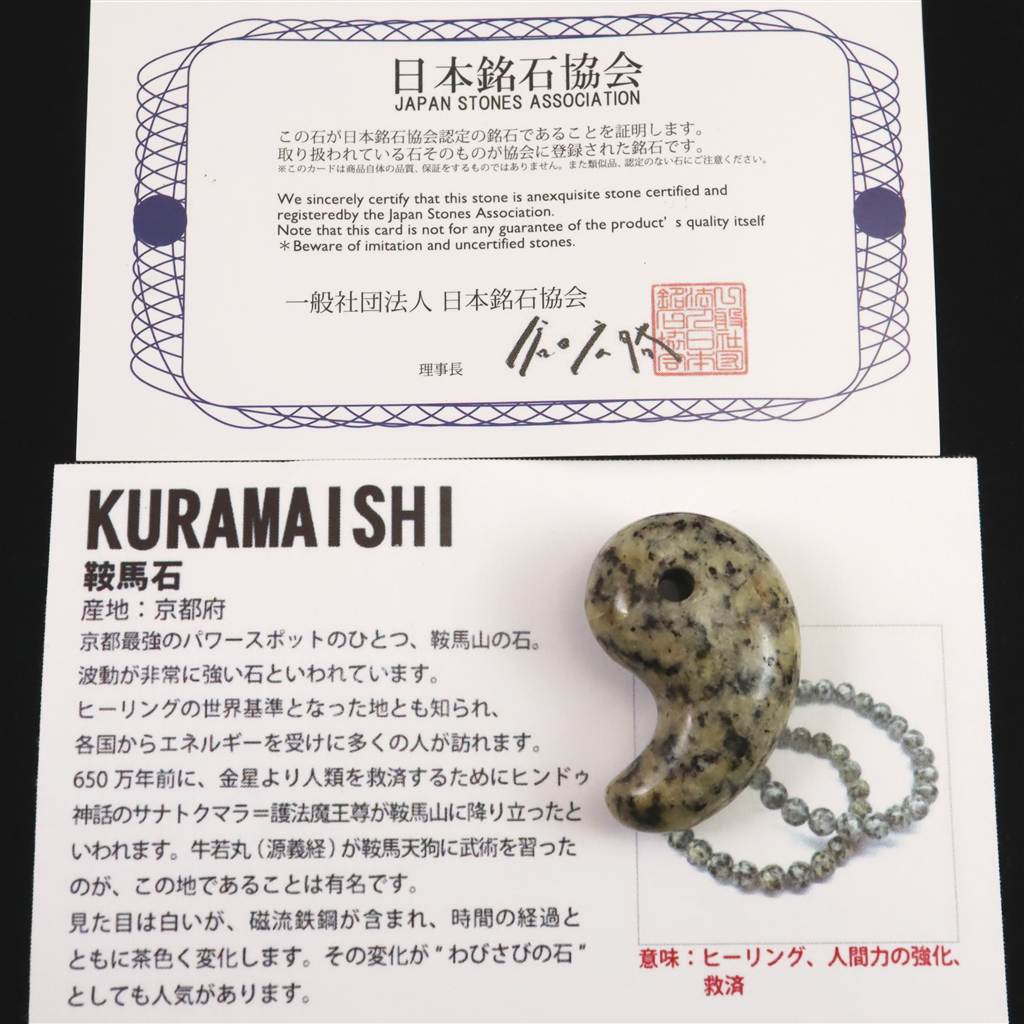 日本銘石協会
JAPAN STONES ASSOCIATION
この石が日本銘石協会認定の銘石であることを証明します。
取り扱われている石そのものが協会に登録された銘石です。
※このカードは商品自体の品質、保証をするものではありません。また類似品、認定のない石にご注意ください。
We sincerely certify that this stone is anexquisite stone certified and
registeredby the Japan Stones Association.
Note that this card is not for any guarantee of the product's quality itself
＊Beware of imitation and uncertified stones.
一般社団法人 日本銘石協会
理事長
KURAMAISHI
鞍馬石
産地：京都府
京都最強のパワースポットのひとつ、鞍馬山の石。
波動が非常に強い石といわれています。
ヒーリングの世界基準となった地とも知られ、
各国からエネルギーを受けに多くの人が訪れます。
650万年前に、金星より人類を救済するためにヒンドゥ
神話のサナトクマラ＝護法魔王尊が鞍馬山に降り立ったと
いわれます。牛若丸（源義経）が鞍馬天狗に武術を習った
のが、この地であることは有名です。
見た目は白いが、磁流鉄鋼が含まれ、時間の経過と
ともに茶色く変化します。その変化が“わびさびの石”
としても人気があります。
意味：ヒーリング、人間力の強化、
救済